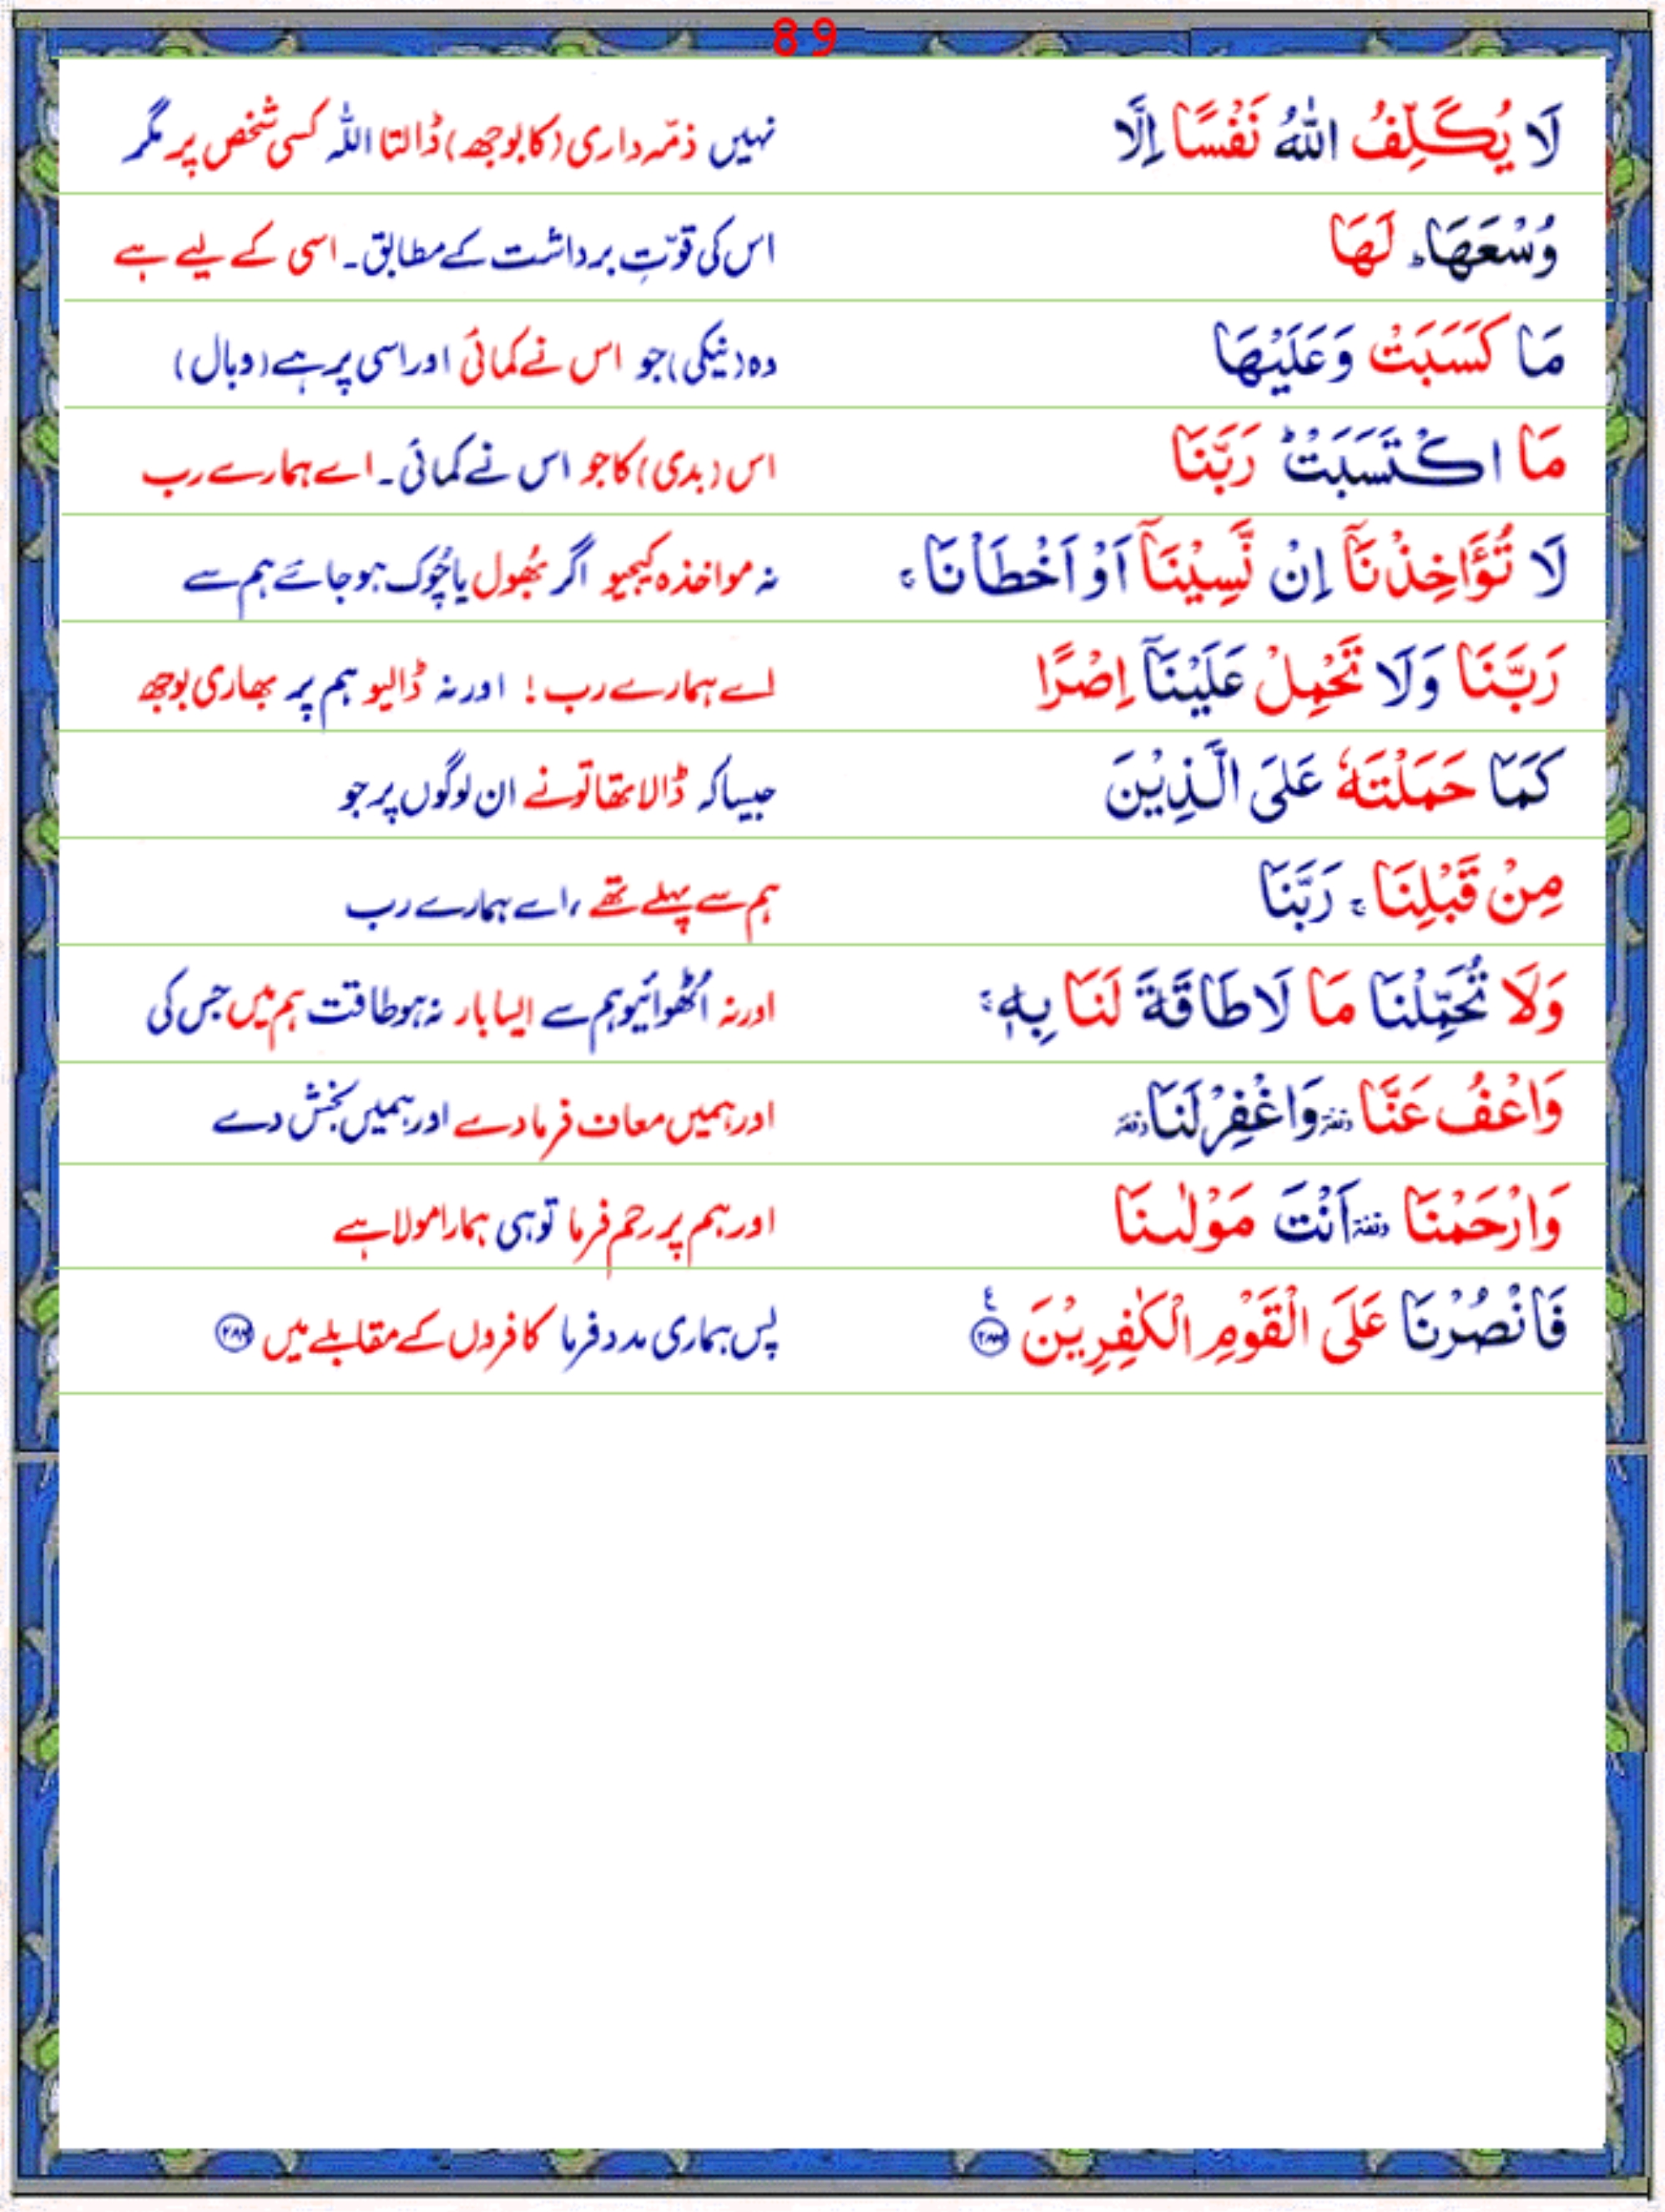 89
لَا يُكَلِّفُ اللّٰهُ نَفْسًا اِلَّا نہیں ذمّہ داری (کا بوجھ) ڈالتا اللّٰہ کسی شخص پر مگر
وُسْعَهَا ؕ لَهَا اس کی قوّتِ برداشت کے مطابق۔ اسی کے لیے ہے
مَا كَسَبَتْ وَعَلَيْهَا وہ (نیکی) جو اس نے کمائی اور اسی پر ہے (وبال)
مَا اكْتَسَبَتْ ؕ رَبَّنَا اس (بدی) کا جو اس نے کمائی۔ اے ہمارے رب
لَا تُؤَاخِذْنَاۤ اِنْ نَّسِيْنَاۤ اَوْ اَخْطَاْنَا ۚ نہ مواخذہ کیجیو اگر بھُول یا چُوک ہو جائے ہم سے
رَبَّنَا وَلَا تَحْمِلْ عَلَيْنَاۤ اِصْرًا اے ہمارے رب! اور نہ ڈالیو ہم پر بھاری بوجھ
كَمَا حَمَلْتَهٗ عَلَى الَّذِيْنَ جیسا کہ ڈالا تھا تُونے ان لوگوں پر جو
مِنْ قَبْلِنَا ۚ رَبَّنَا ہم سے پہلے تھے، اے ہمارے رب
وَلَا تُحَمِّلْنَا مَا لَا طَاقَةَ لَنَا بِهٖ ۚ اور نہ اُٹھوائیو ہم سے ایسا بار نہ ہو طاقت ہم میں جس کی
وَاعْفُ عَنَّا وقفة وَاغْفِرْ لَنَا وقفة اور ہمیں معاف فرما دے اور ہمیں بخش دے
وَارْحَمْنَا وقفة اَنْتَ مَوْلٰىنَا اور ہم پر رحم فرما تو ہی ہمارا مولا ہے
فَانْصُرْنَا عَلَى الْقَوْمِ الْكٰفِرِيْنَ ع ۲۸۶ پس ہماری مدد فرما کافروں کے مقابلے میں ۲۸۶